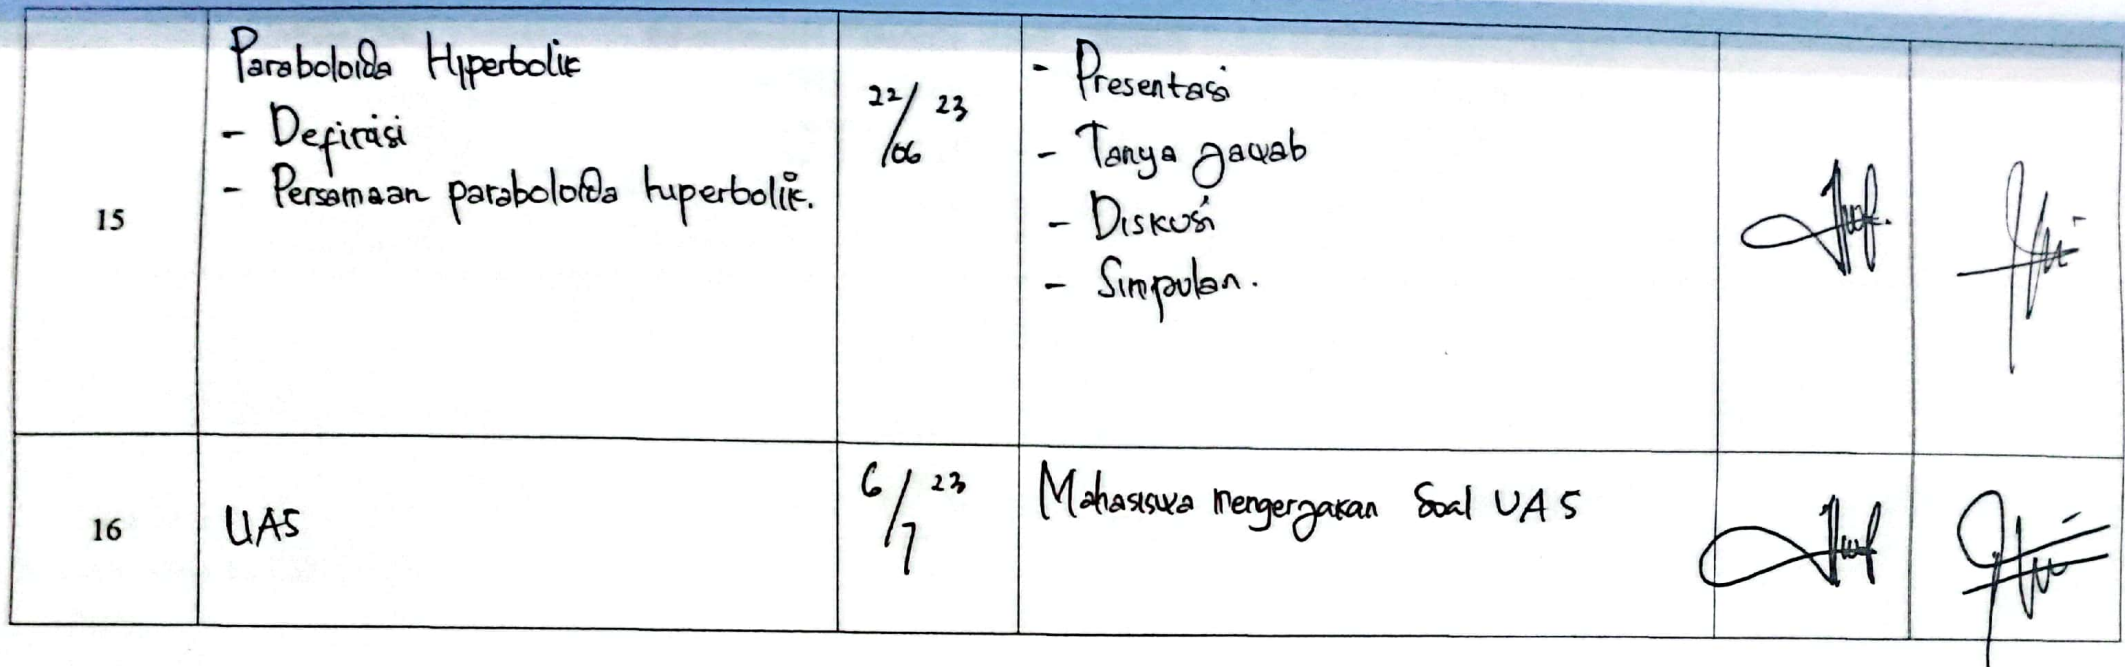 15
Paraboloida Hyperbolik
- Definisi
- Persamaan paraboloida hyperbolik.
22/06 23
- Presentasi
- Tanya jawab
- Diskusi
- Simpulan.
16
UAS
6/7 23
Mahasiswa mengerjakan Soal UAS